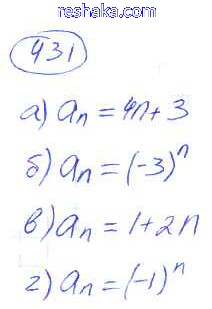 reshaka.com
431
а) aₙ = 4n + 3
б) aₙ = (-3)ⁿ
в) aₙ = 1 + 2n
г) aₙ = (-1)ⁿ